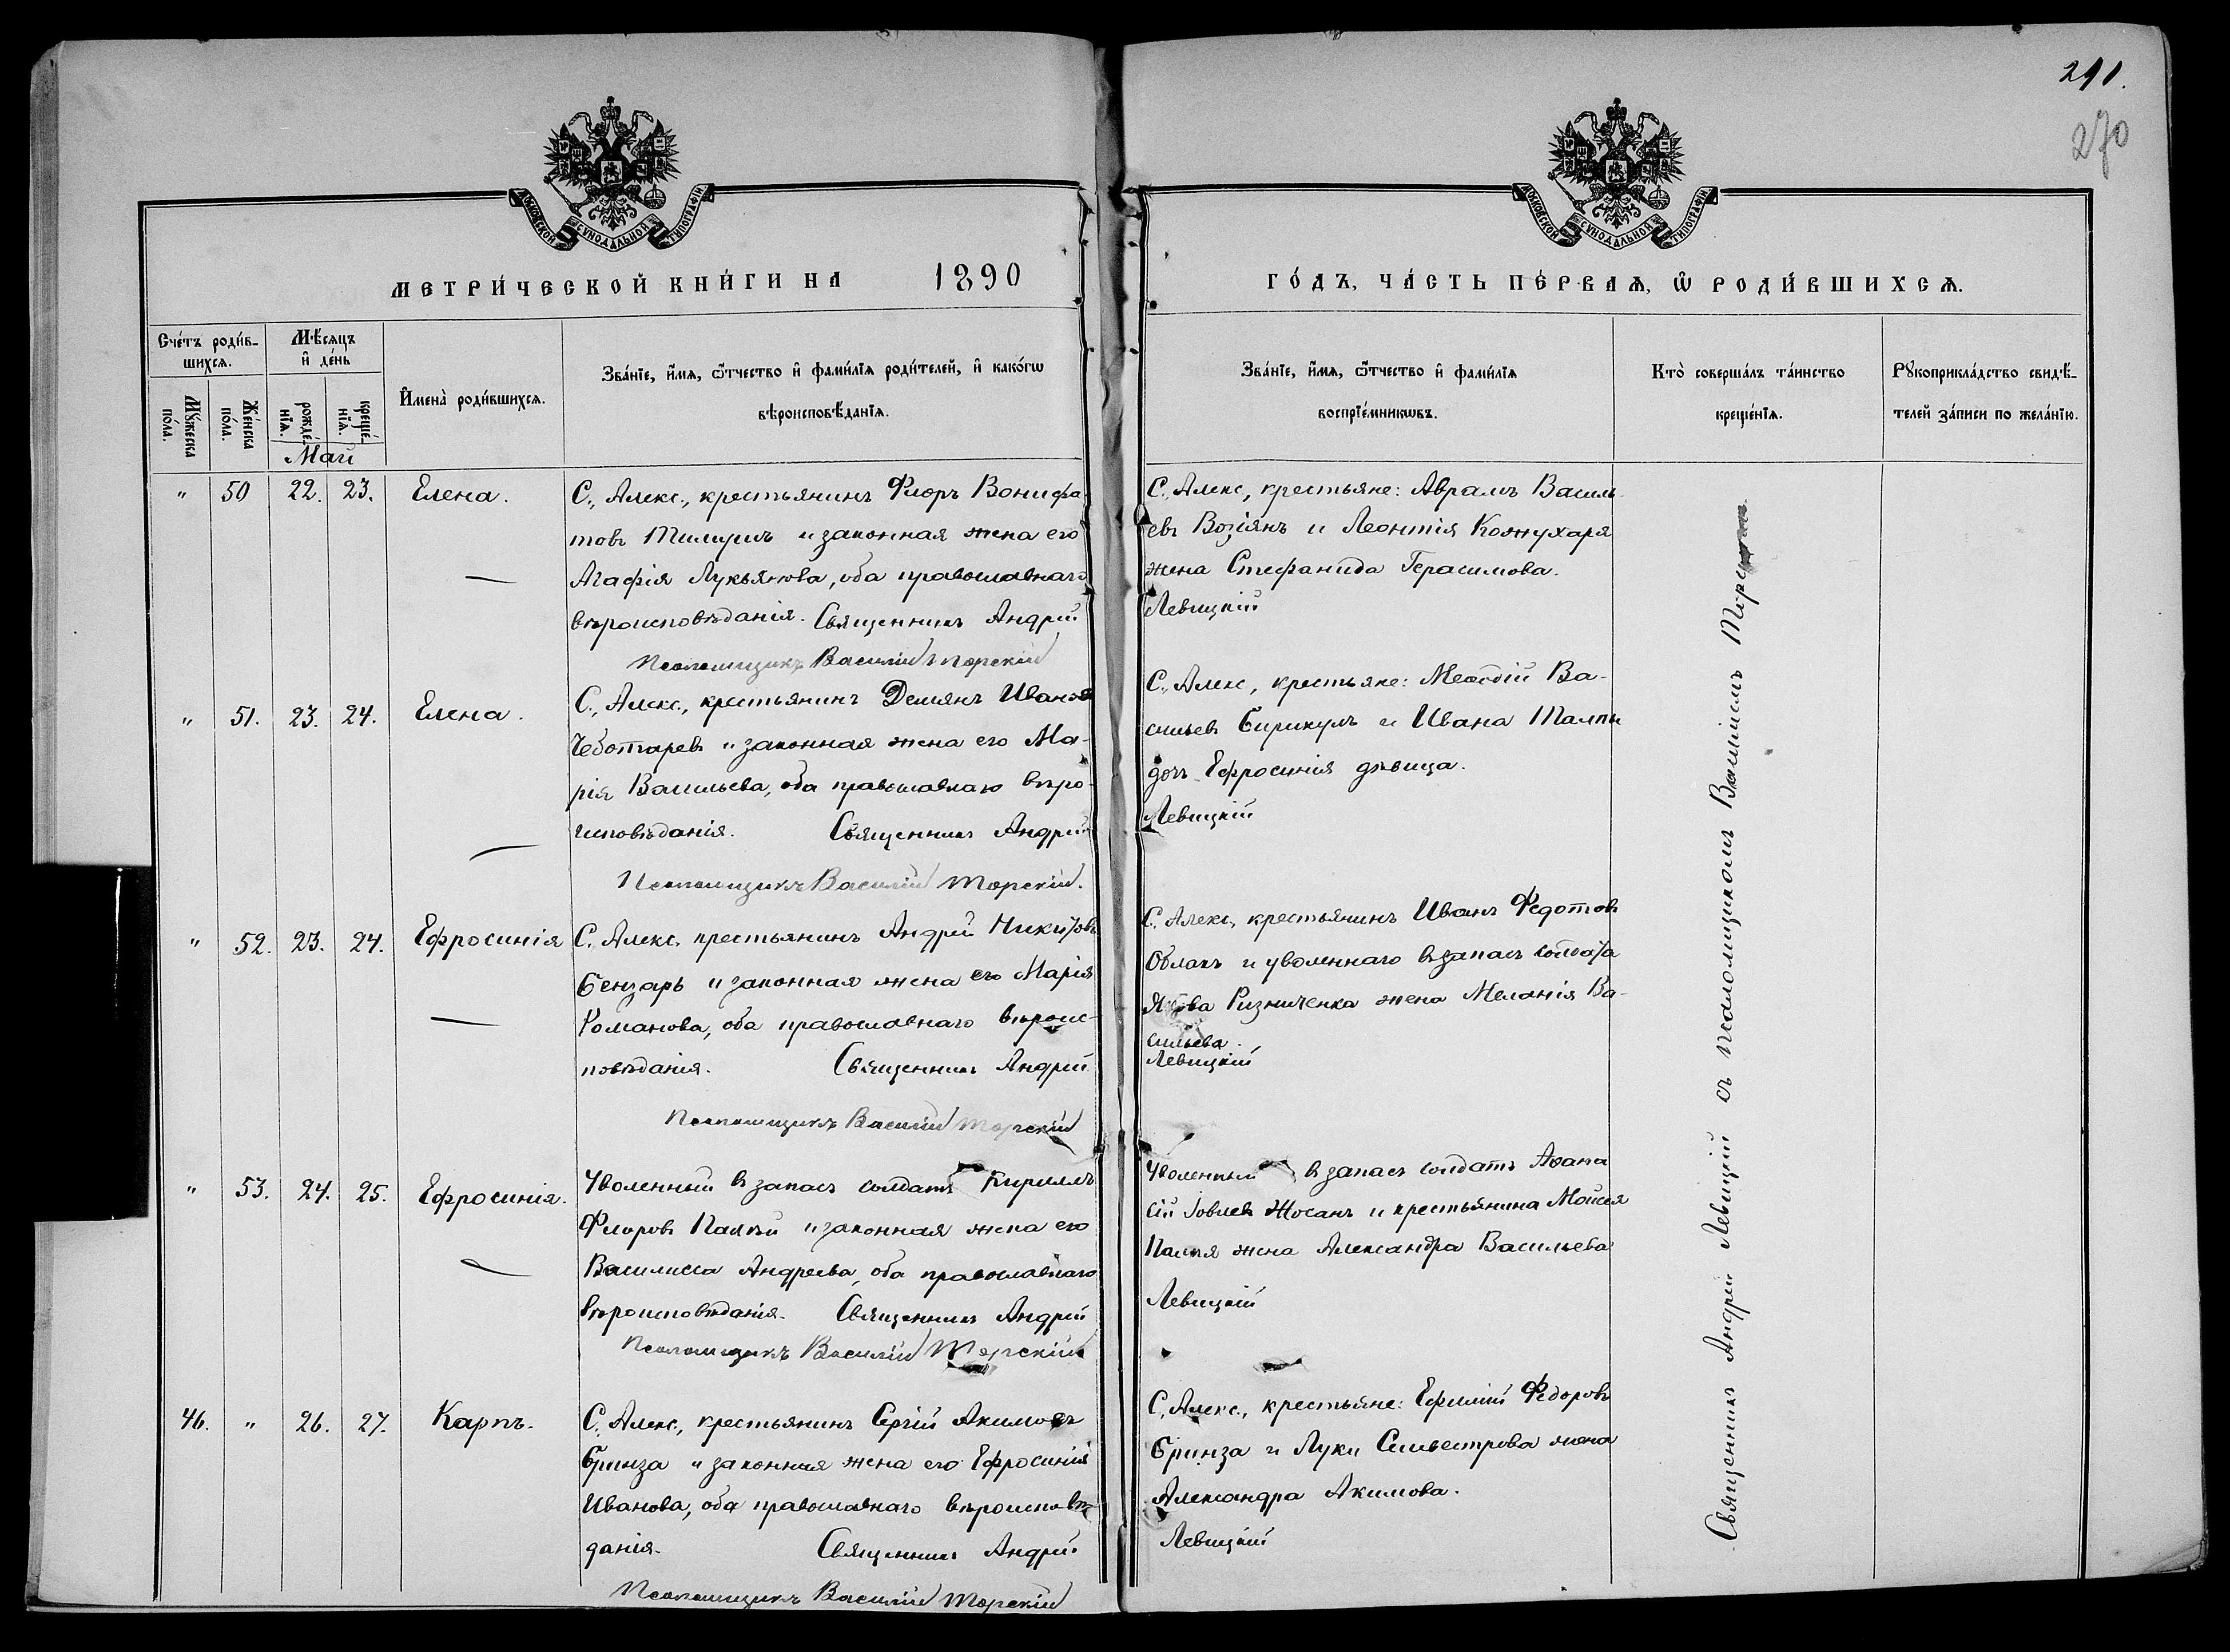 291.
270
МОСКОВСКОЙ СУНОДАЛЬНОЙ ТИПОГРАФІИ
МОСКОВСКОЙ СУНОДАЛЬНОЙ ТИПОГРАФІИ
МЕТРИ́ЧЕСКОЙ КНИ́ГИ НА 1890
ГО́ДЪ, ЧА́СТЬ ПЕ́РВАѦ, Ѡ РОДИ́ВШИХСѦ.
Сче́тъ роди́в-
шихся.
Мѣ́сяцъ
и҆ де́нь
Мꙋ́жеска
по́ла.
Же́нска
по́ла.
рожде́-
нїѧ.
креще́-
нїѧ.
И҆мена̀ роди́вшихся.
Зва́нїе, и҆́мѧ, ѻ҆́тчество и҆ фами́лїѧ роди́телей, и҆ како́гѡ
вѣроисповѣ́данїѧ.
Зва́нїе, и҆́мѧ, ѻ҆́тчество и҆ фами́лїѧ
воспрїе́мникѡвъ.
Кто̀ соверша́лъ та́инство
креще́нїѧ.
Рꙋкоприкла́дство свидѣ́-
телей за́писи по жела́нїю.
Май
" 50 22. 23. Елена.
С., Алекс., крестьянинъ Флоръ Вонифа-
товъ и законная жена его
Агафія Лукьянова, оба православнаго
вѣроисповѣданія. Священникъ Андрей
Псаломщикъ Василій Торскій
С., Алекс, крестьяне: Аврамъ Василь-
евъ Возіянъ и Леонтія Кожухаря
жена Стефанида Герасимова.
Левицкій
" 51. 23. 24. Елена.
С., Алекс., крестьянинъ Демянъ Ивановъ
Чеботарев и законная жена его Ма-
рія Васильева, оба православнаго вѣро-
исповѣданія. Священникъ Андрей
Псаломщикъ Василій Торскій.
С., Алекс, крестьяне: Меѳодій Ва-
сильевъ Бирикулъ и Ивана
дочь Ефросинія дѣвица.
Левицкій
" 52. 23. 24. Ефросинія
С. Алекс. крестьянинъ Андрей Никитовъ
Бензарь и законная жена его Марія
Романова, оба православнаго вѣроис-
повѣданія. Священникъ Андрей
Псаломщикъ Василій Торскій
С. Алекс., крестьянинъ Иванъ Федотовъ
и уволеннаго въ запасъ солдата
Якова Ризниченка жена Меланія Ва-
сильева.
Левицкій
" 53. 24. 25. Ефросинія.
Уволенный въ запасъ солдатъ Кириллъ
Флоровъ Палѣй и законная жена его
Василисса Андреева, оба православнаго
вѣроисповѣданія. Священникъ Андрей
Псаломщикъ Василій Торскій
Уволенный въ запасъ солдатъ Аѳана-
сій Іовлевъ Жосанъ и крестьянина Моисея
Палѣя жена Александра Васильева
Левицкій
46. " 26. 27. Карпъ.
С. Алекс., крестьянинъ Сергій Акимовъ
Бринза и законная жена его Ефросинія
Иванова, оба православнаго вѣроисповѣ-
данія. Священникъ Андрей
Псаломщикъ Василій Торскій
С. Алекс., крестьяне: Ефимій Федоровъ
Бринза и Луки Сильвестрова жена
Александра Акимова.
Левицкій
Священникъ Андрей Левицкій съ псаломщикомъ Василіемъ Торскимъ